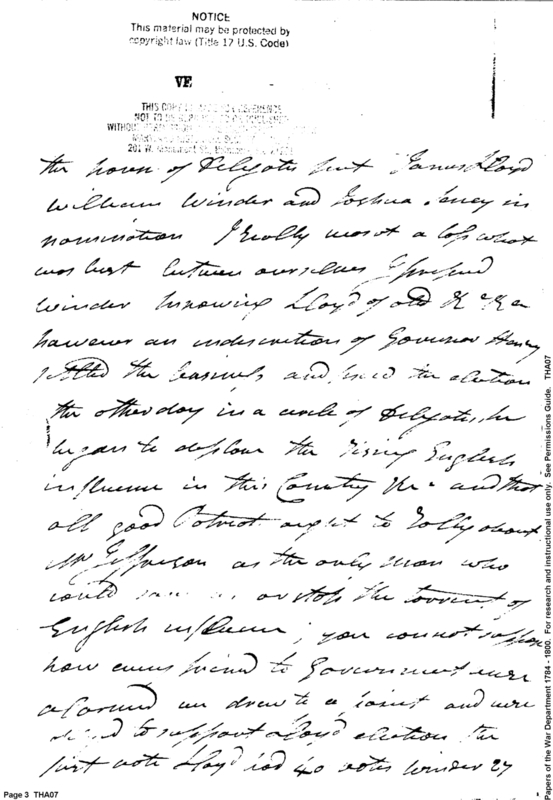 NOTICE
This material may be protected by
copyright law (Title 17 U.S. Code)
VE
THIS COPY
NOT TO BE
WITHOUT
201 W.
the house of Delegates put James Lloyd
William Winder and Joshua Seney in
nomination I really was at a loss what
was best between ourselves I prefered
Winder knowing Lloyd of old &c &c
however an indiscretion of Governor Henry
settled the business and fixed the election
the other day in a circle of Delegates, he
began to deplore the rising English
influence in this Country &c and that
all good Patriots ought to rally about
Mr Jefferson as the only man who
could save us or stop the torrent of
English influence, you cannot suppose
how every friend to Government were
alarmed we drew to a point and were
to support Lloyd election the
first vote Lloyd had 40 votes Winder 27
Page 3 THA07
Papers of the War Department 1784 - 1800. For research and instructional use only. See Permissions Guide. THA07